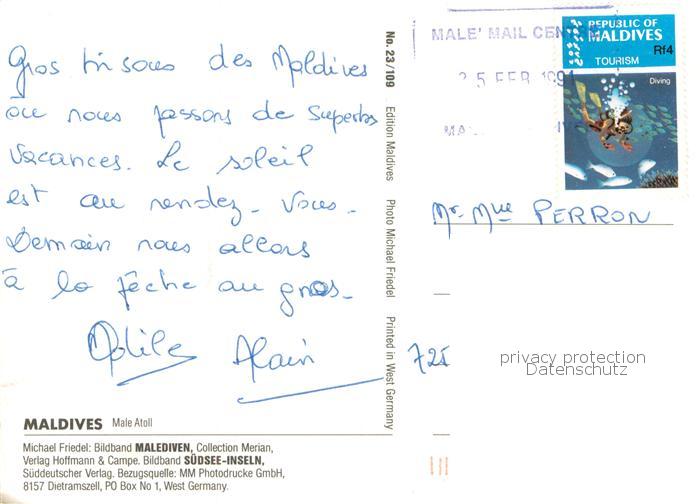 Gros bisous des Maldives
où nous passons de superbes
vacances. Le soleil
est au rendez-vous.
Demain nous allons
à la pêche au gros.
Odile Alain
MALDIVES Male Atoll
Michael Friedel: Bildband MALEDIVEN, Collection Merian,
Verlag Hoffmann & Campe. Bildband SÜDSEE-INSELN,
Süddeutscher Verlag. Bezugsquelle: MM Photodrucke GmbH,
8157 Dietramszell, PO Box No 1, West Germany.
No. 23/109 Edition Maldives Photo Michael Friedel Printed in West Germany
MALE' MAIL CENTRE
25 FEB 1991
REPUBLIC OF
MALDIVES
Rf4
TOURISM
Diving
Mr. Mme PERRON
725
privacy protection
Datenschutz